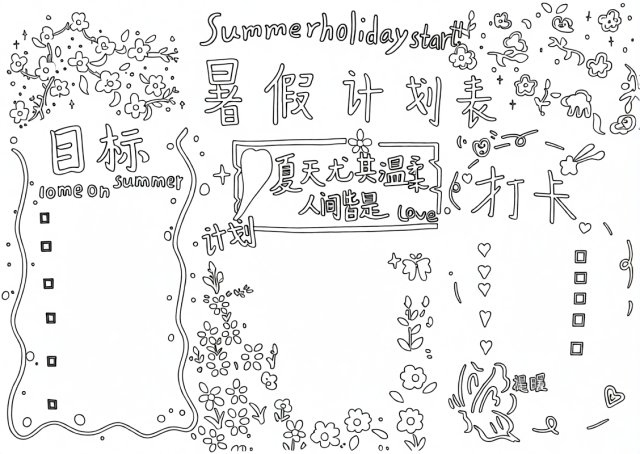 Summerholiday start!!
暑假计划表
目标
10meon summer
夏天尤其温柔
人间皆是 Love
计划
打卡
温暖